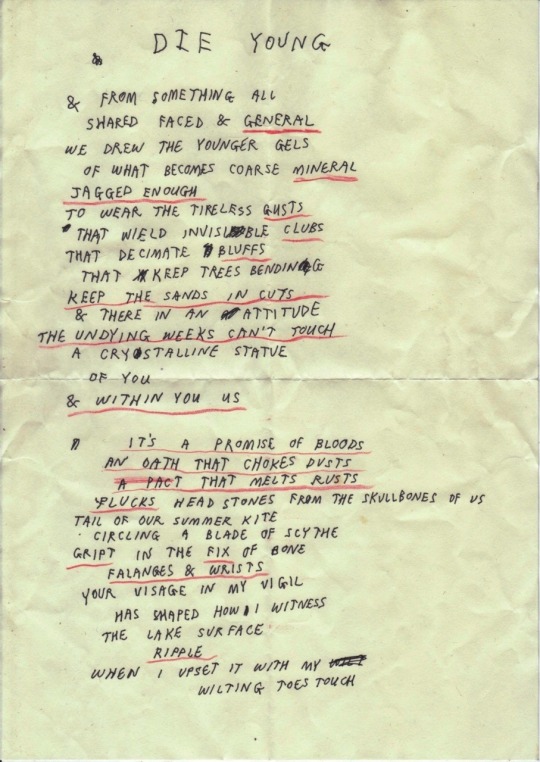 DIE YOUNG
& FROM SOMETHING ALL
SHARED FACED & GENERAL
WE DREW THE YOUNGER GELS
OF WHAT BECOMES COARSE MINERAL
JAGGED ENOUGH
TO WEAR THE TIRELESS GUSTS
THAT WIELD INVISIBLE CLUBS
THAT DECIMATE BLUFFS
THAT KEEP TREES BENDING
KEEP THE SANDS IN CUTS
& THERE IN AN ATTITUDE
THE UNDYING WEEKS CAN'T TOUCH
A CRYSTALLINE STATUE
OF YOU
& WITHIN YOU US
IT'S A PROMISE OF BLOODS
AN OATH THAT CHOKES DUSTS
A PACT THAT MELTS RUSTS
PLUCKS HEAD STONES FROM THE SKULLBONES OF US
TAIL OF OUR SUMMER KITE
CIRCLING A BLADE OF SCYTHE
GRIPT IN THE FIX OF BONE
FALANGES & WRISTS
YOUR VISAGE IN MY VIGIL
HAS SHAPED HOW I WITNESS
THE LAKE SURFACE
RIPPLE
WHEN I UPSET IT WITH MY
WILTING TOES TOUCH